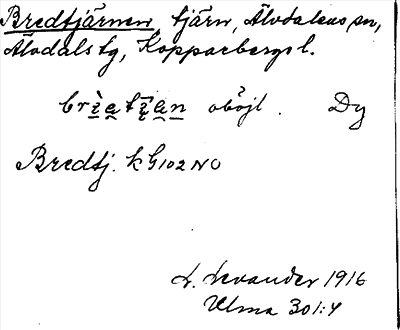 Bredtjärnen tjärn, Älvdalens sn,
Älvdals tg, Kopparbergs l.
oböjl. Dy
Bredtj. k G102 NO
L. Levander 1916
Ulma 301:4